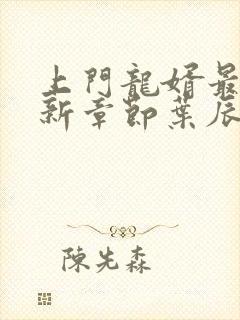 上門龍婿最
新章節葉辰
陳先森